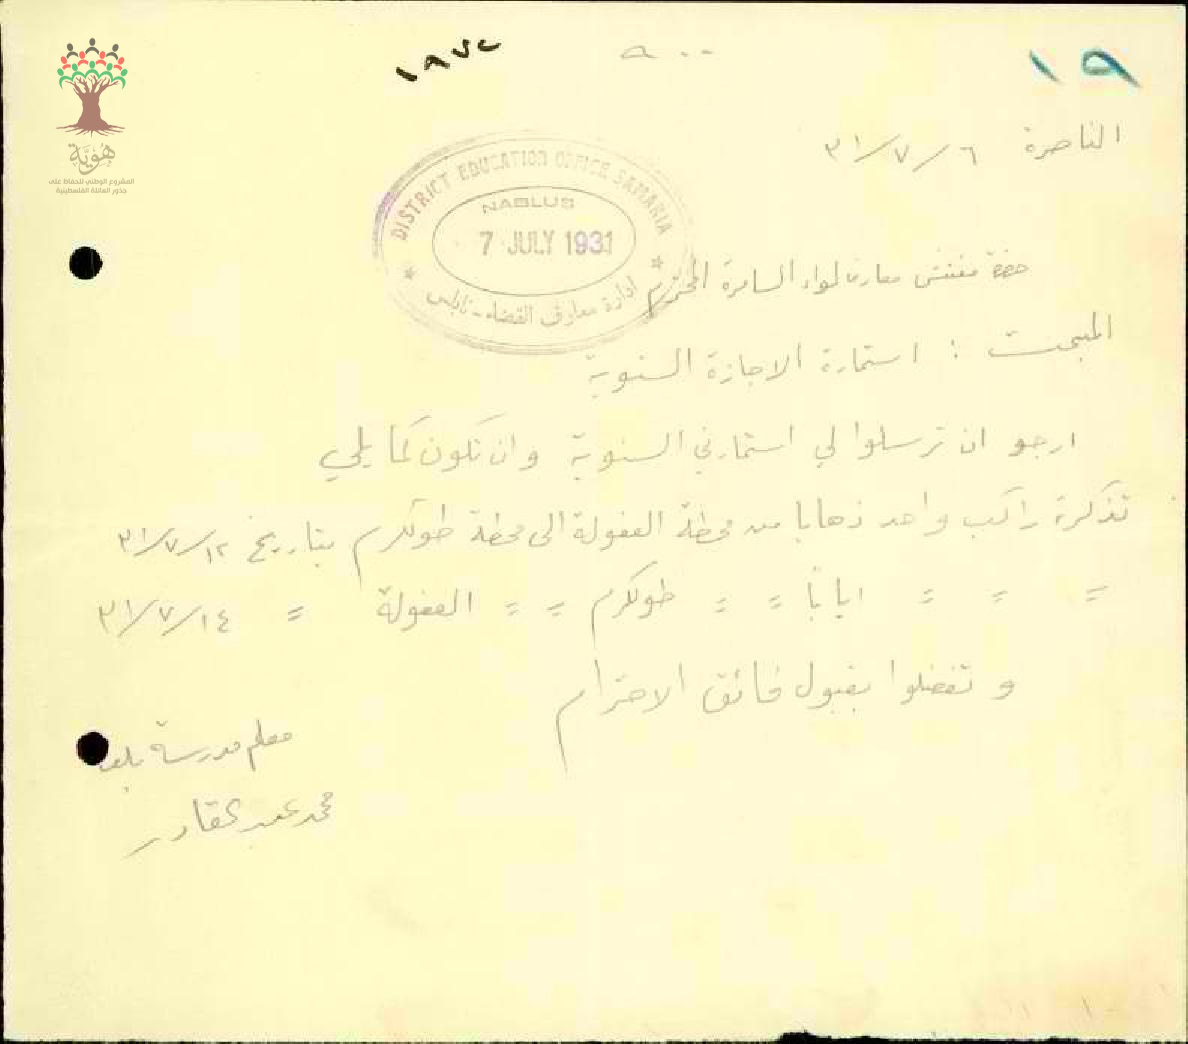 ١٩
١٩٧٢
هوية
المشروع الوطني للحفاظ على
جذور العائلة الفلسطينية
الناصرة ٦/٧/٣١
DISTRICT EDUCATION OFFICE SAMARIA
NABLUS
7 JULY 1931
ادارة معارف القضاء - نابلس
حضرة مفتش معارف لواء السامرة المحترم
المبحث : استمارة الاجازة السنوية
ارجو ان ترسلوا لي استمارتي السنوية وان تكون كما يلي
تذكرة راكب واحد ذهابا من محطة العفولة الى محطة طولكرم بتاريخ ١٢/٧/٣١
= = = ايابا = = طولكرم = = العفولة = ١٤/٧/٣١
و تفضلوا بقبول فائق الاحترام
معلم مدرسة
محمد عبد القادر